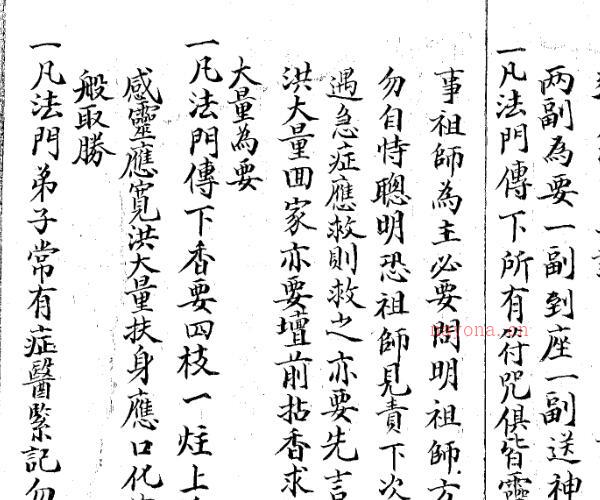 两副為要一副到座一副送神
一凡法門傳下所有符咒俱皆靈
事祖師為主必要問明祖師方
勿自恃聰明恐祖師見責下次
遇急症應救則救之亦要先言
洪大量回家亦要壇前拈香求
大量為要
一凡法門傳下香要四枝一炷上
感靈應寬洪大量扶身應口化
般取勝
一凡法門弟子常有症醫緊記勿
nayona.cn